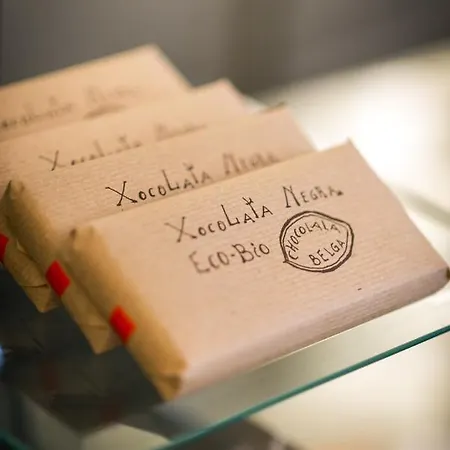 Xocolata Negra
Xocolata Negra
Xocolata Negra
Eco-Bio
Chocolata
Belga